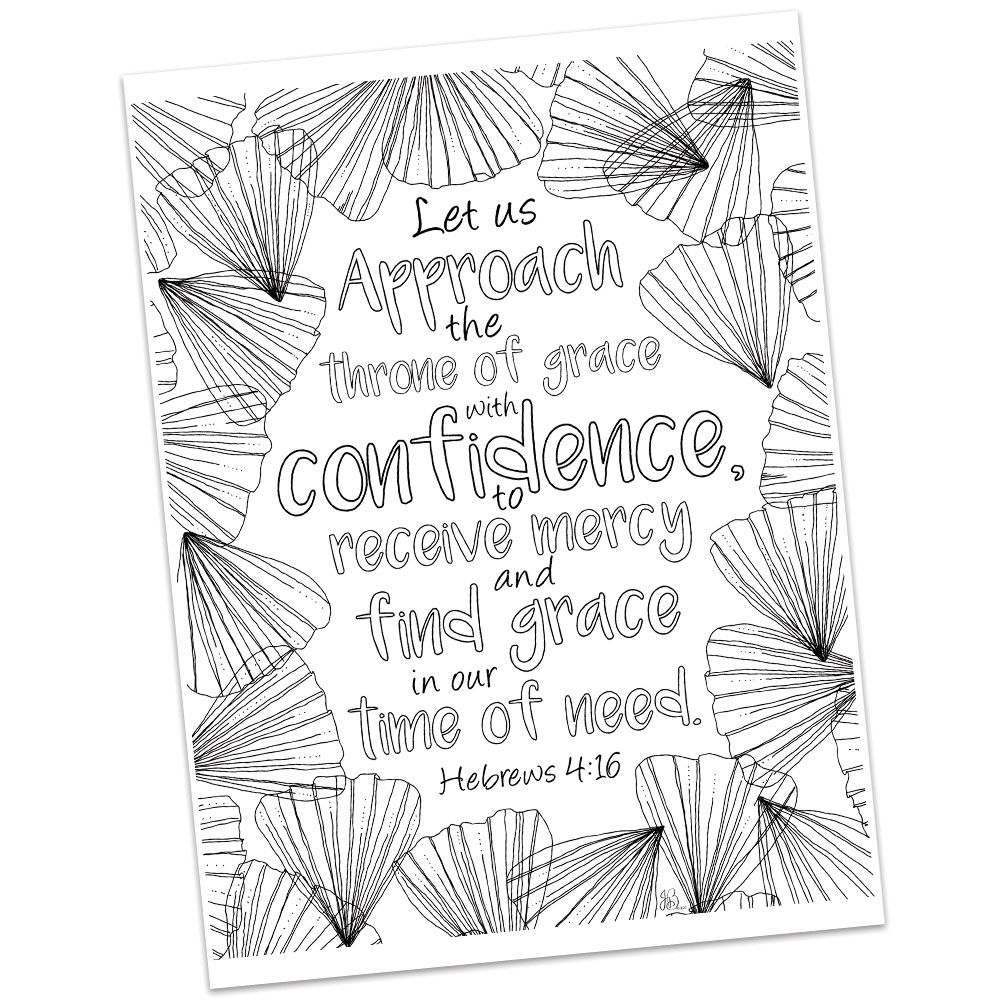 Let us
Approach
the
throne of grace
with
confidence,
to
receive mercy
and
find grace
in our
time of need.
Hebrews 4:16